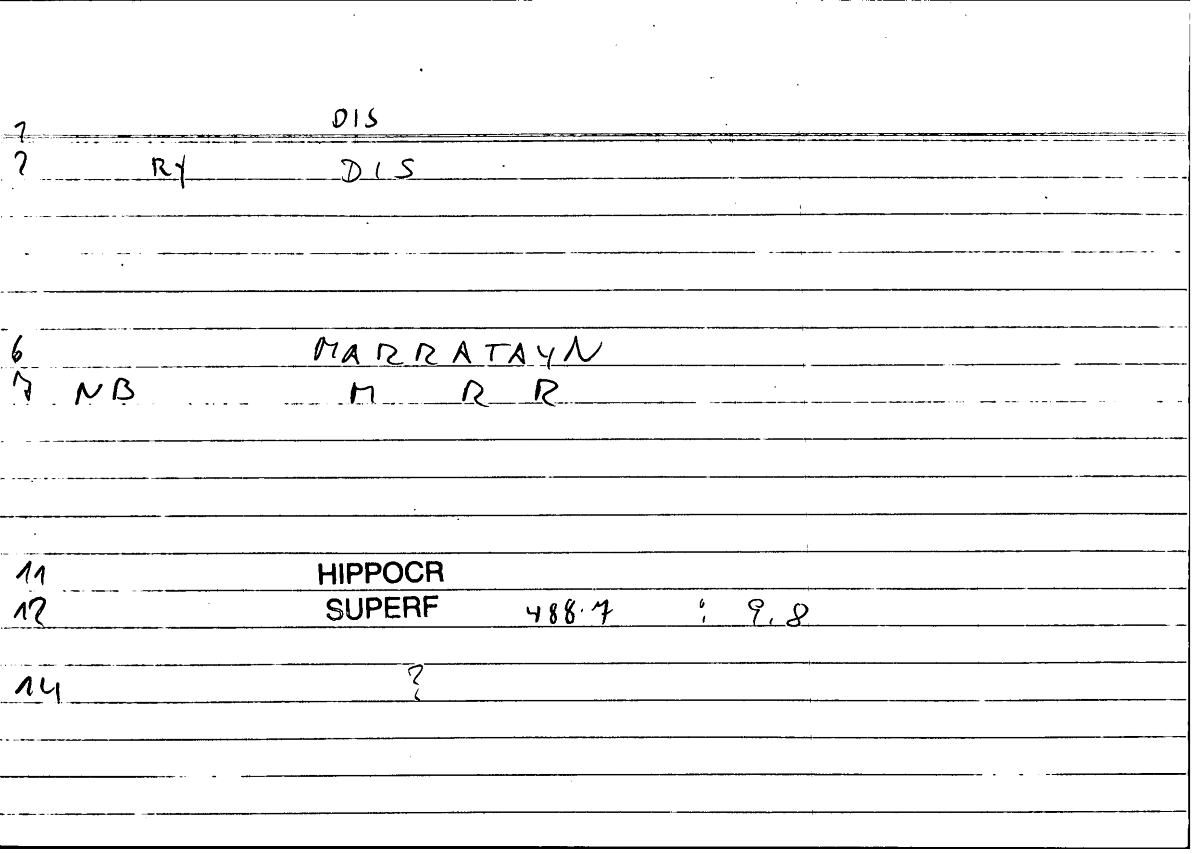 1 DIS
2 RY DIS
6 MARRATAYN
7 NB M R R
11 HIPPOCR
12 SUPERF 488.7 : 9.8
14 ?